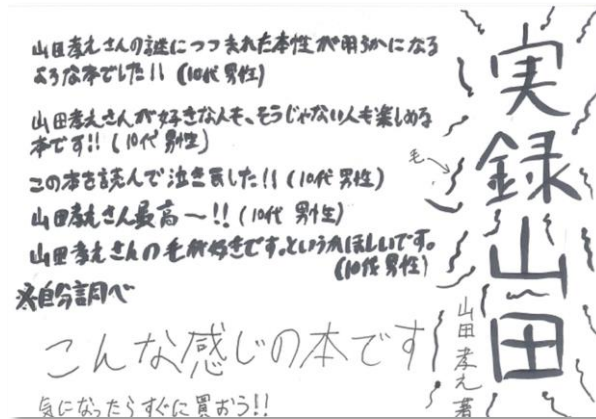 実録山田
山田孝之 著
毛
山田孝之さんの謎につつまれた本性が明らかになる
ような本でした!! (10代 男性)
山田孝之さんが好きな人も、そうじゃない人も楽しめる
本です!! (10代 男性)
この本を読んで泣きました!! (10代 男性)
山田孝之さん最高〜!! (10代 男性)
山田孝之さんの毛が好きです。というかほしいです。
(10代 男性)
※自分調べ
こんな感じの本です
気になったらすぐに買おう!!